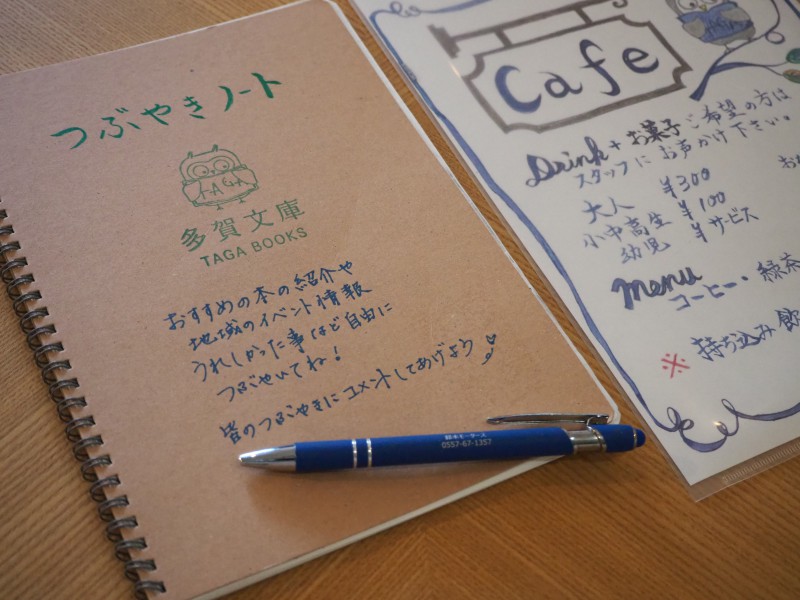 つぶやきノート
TAGA
多賀文庫
TAGA BOOKS
おすすめの本の紹介や
地域のイベント情報
うれしかった事など自由に
つぶやいてね！
皆のつぶやきにコメントしてあげよう
0557-67-1357
Cafe
Drink + お菓子ご希望の方は
スタッフにお声かけ下さい。
大人 ¥300
小中高生 ¥100
幼児 ¥サービス
Menu
コーヒー・緑茶
※ 持ち込み飲